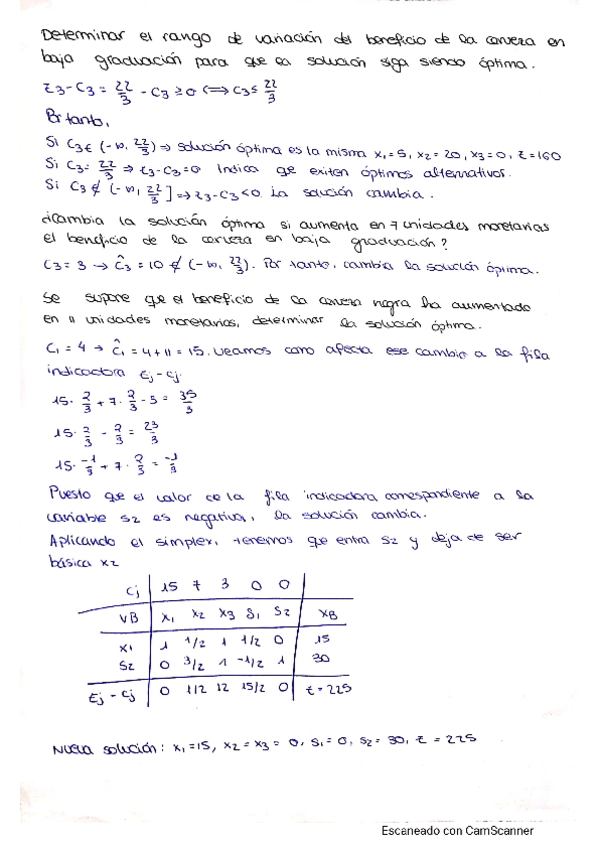 Determinar el rango de variación del beneficio de la cerveza en
baja graduación para que la solución siga siendo óptima.
z3-C3 = 22/3 - C3 ≥ 0 ⟺ C3 ≤ 22/3
Por tanto,
Si C3 ∈ (-∞, 22/3) ⇒ solución óptima es la misma x1=5, x2=20, x3=0, z=160
Si C3= 22/3 ⇒ z3-C3=0 Indica qe existen óptimos alternativos.
Si C3 ∉ (-∞, 22/3] ⇒ z3-C3<0 La solución cambia.
¿Cambia la solución óptima si aumenta en 7 unidades monetarias
el beneficio de la cerveza en baja graduación?
C3 = 3 → Ĉ3 = 10 ∉ (-∞, 22/3). Por tanto, cambia la solución óptima.
Se supone que el beneficio de la cerveza negra ha aumentado
en 11 unidades monetarias, determinar la solución óptima.
C1 = 4 → Ĉ1 = 4+11 = 15. Veamos como afecta ese cambio a la fila
indicadora zj - cj.
15· 2/3 + 7· 2/3 - 3 = 35/3
15· 2/3 - 2/3 = 23/3
15· -1/3 + 7· 2/3 = -1/3
Puesto que el valor de la fila indicadora correspondiente a la
variable s2 es negativa, la solución cambia.
Aplicando el simplex, tenemos que entra s2 y deja de ser
básica x2
Cj 15 7 3 0 0
VB x1 x2 x3 s1 s2 XB
x1 1 1/2 1 1/2 0 15
s2 0 3/2 1 -1/2 1 30
zj - cj 0 1/2 12 15/2 0 z = 225
Nueva solución: x1=15, x2 = x3 = 0, s1=0, s2=30, z = 225
Escaneado con CamScanner